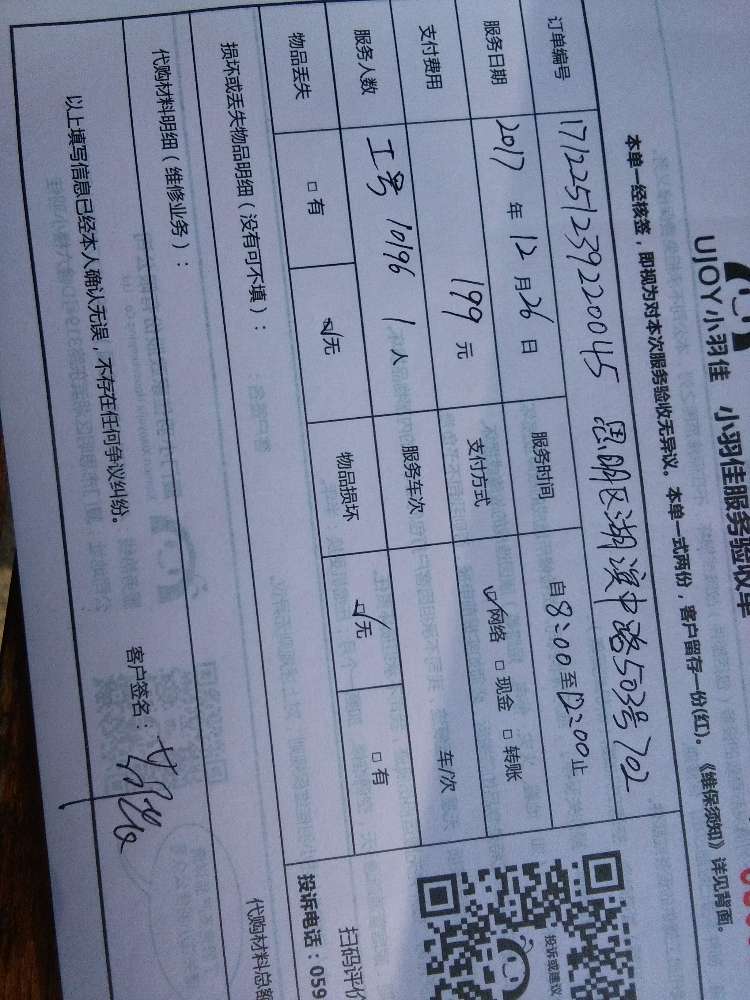 UJOY小羽佳 小羽佳服务验收单
本单一经核签，即视为对本次服务验收无异议。本单一式两份，客户留存一份(红)。《维保须知》详见背面。
订单编号 1712251239220045 思明区湖滨中路503号702
服务日期 2017 年 12 月 26 日 服务时间 自8:00至12:00止
支付费用 199 元 支付方式 ☑网络 □现金 □转账
服务人数 工号10196 1人 服务车次 车/次
物品丢失 □有 ☑无 物品损坏 ☑无 □有
投诉或建议
扫码评价
投诉电话：059
损坏或丢失物品明细（没有可不填）：
代购材料明细（维修业务）： 代购材料总额
以上填写信息已经本人确认无误，不存在任何争议纠纷。 客户签名：